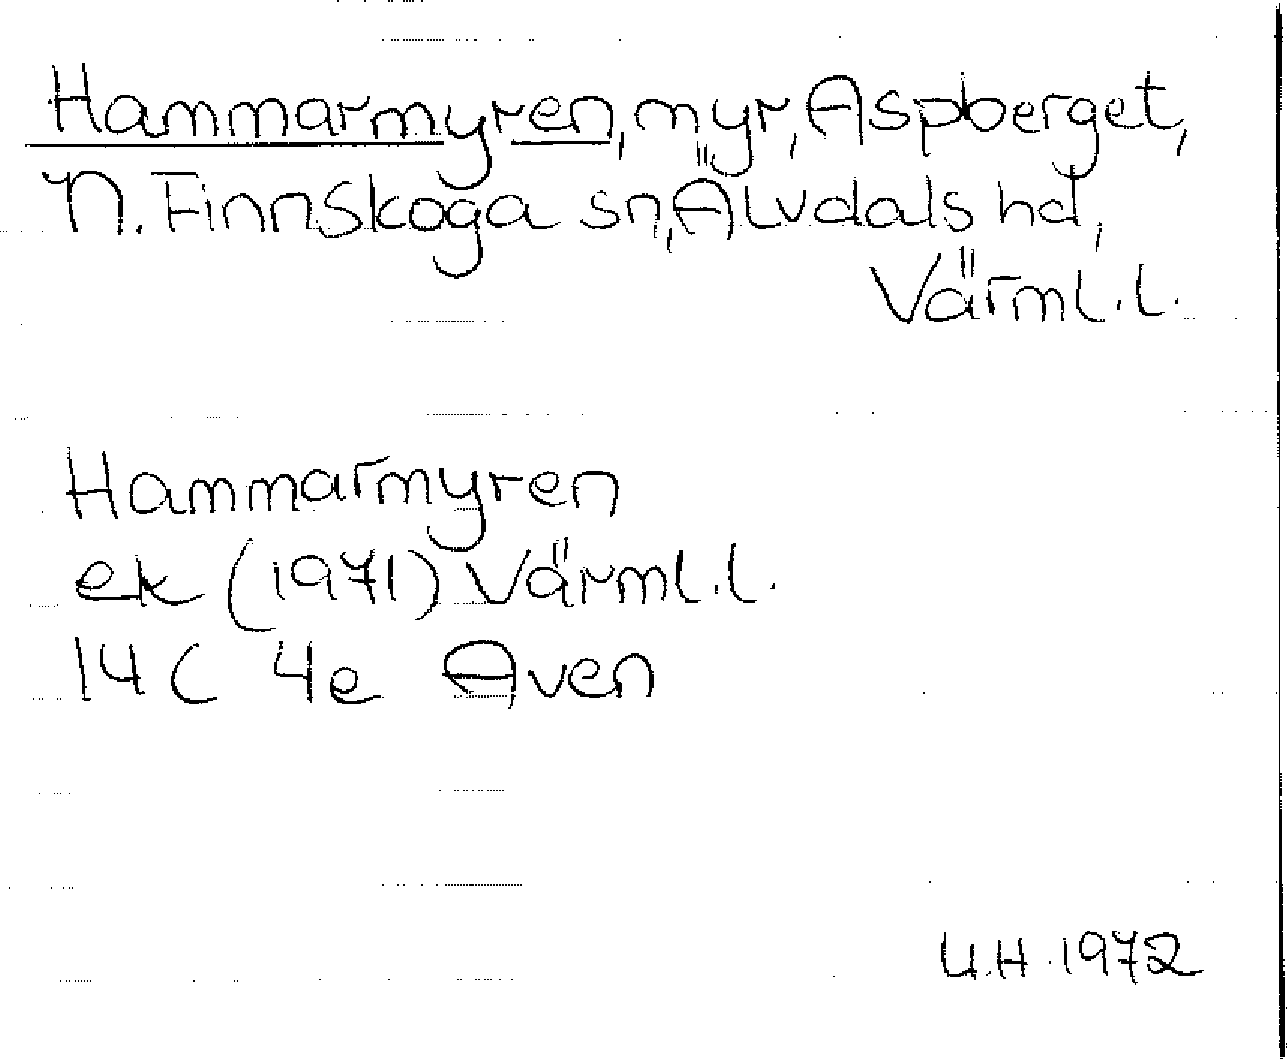 Hammarmyren, myr, Aspberget,
N. Finnskoga sn, Älvdals hd,
Värml. l.
Hammarmyren
ek (1971) Värml. l.
14 C 4e Aven
U.H. 1972